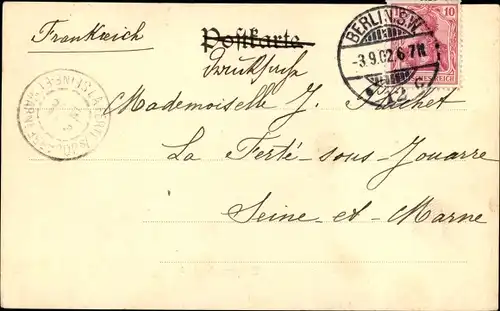 Frankreich
Postkarte
Drucksache
BERLIN S.W.
-3.9.02.6-7N.
10
Mademoiselle J.
La Ferté-sous-Jouarre
Seine-et-Marne